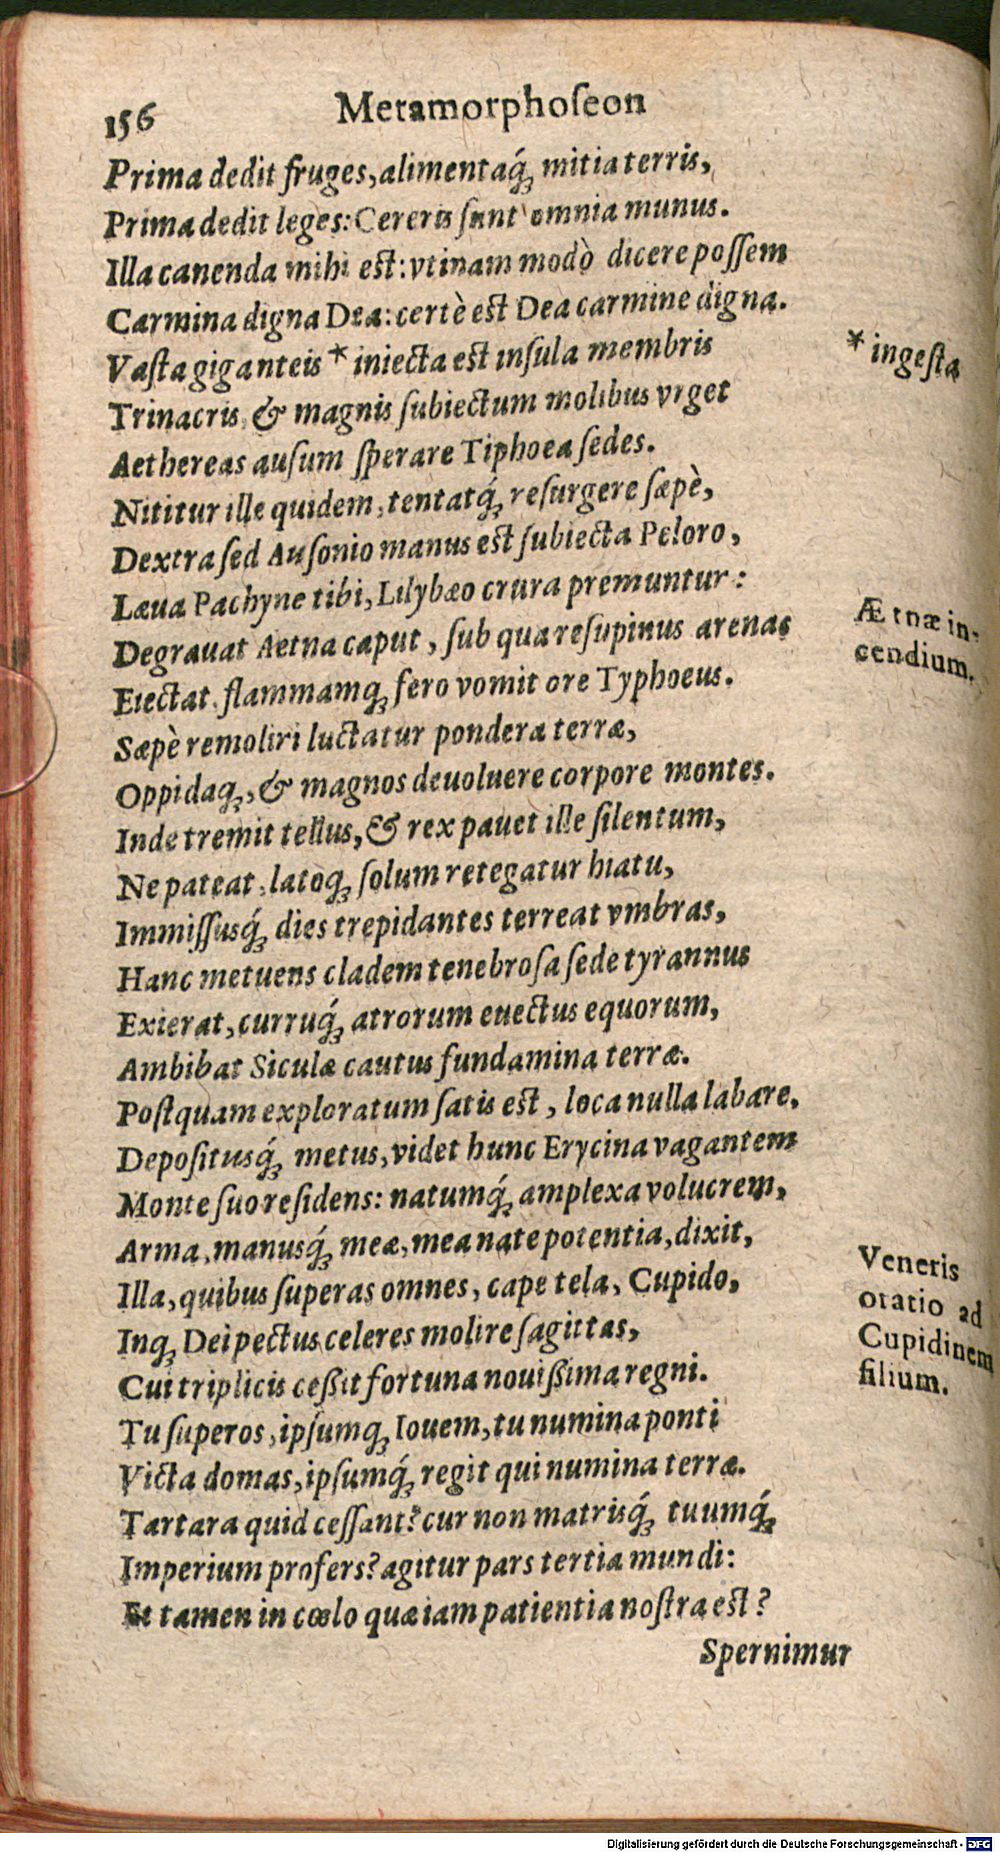 156 Metamorphoſeon
Prima dedit fruges, alimentaq́ꝫ mitia terris,
Prima dedit leges: Cereris ſunt omnia munus.
Illa canenda mihi est: vtinam modò dicere poſſem
Carmina digna Dea: certè est Dea carmine digna.
Vaſta giganteis * iniecta est inſula membris
* ingeſta
Trinacris, & magnis ſubiectum molibus vrget
Aethereas auſum ſperare Tiphoea ſedes.
Nititur ille quidem, tentatq́ꝫ reſurgere ſæpè,
Dextra ſed Auſonio manus est ſubiecta Peloro,
Læua Pachyne tibi, Lilybæo crura premuntur:
Degrauat Aetna caput, ſub qua reſupinus arenas
Ætnæ in-
cendium.
Eiectat, flammamqꝫ fero vomit ore Typhoeus.
Sæpè remoliri luctatur pondera terræ,
Oppidaqꝫ, & magnos deuoluere corpore montes.
Inde tremit tellus, & rex pauet ille ſilentum,
Ne pateat, latoqꝫ ſolum retegatur hiatu,
Immiſſusq́ꝫ dies trepidantes terreat vmbras,
Hanc metuens cladem tenebroſa ſede tyrannus
Exierat, curruq́ꝫ atrorum euectus equorum,
Ambibat Siculæ cautus fundamina terræ.
Poſtquam exploratum ſatis est, loca nulla labare,
Depoſitusq́ꝫ metus, videt hunc Erycina vagantem
Monte ſuo reſidens: natumq́ꝫ amplexa volucrem,
Arma, manusq́ꝫ meæ, mea nate potentia, dixit,
Illa, quibus ſuperas omnes, cape tela, Cupido,
Inqꝫ Dei pectus celeres molire ſagittas,
Cui triplicis ceßit fortuna nouißima regni.
Veneris
oratio ad
Cupidinem
filium.
Tu ſuperos, ipſumqꝫ Iouem, tu numina ponti
Victa domas, ipſumq́ꝫ regit qui numina terræ.
Tartara quid ceſſant? cur non matrisq́ꝫ tuumq́ꝫ
Imperium profers? agitur pars tertia mundi:
Et tamen in cœlo quæ iam patientia noſtra est?
Spernimur
Digitalisierung gefördert durch die Deutsche Forschungsgemeinschaft - DFG